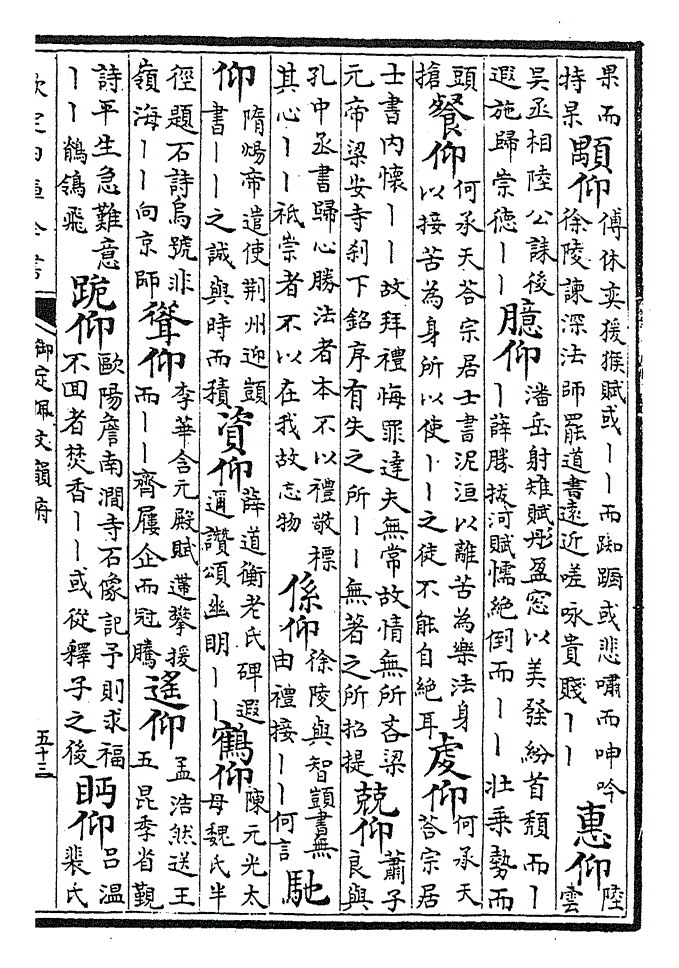 果而持杲顒仰傅休奕猨猴賦或丨丨而踟蹰或悲嘯而呻吟徐陵諫深法師罷道書遠近嗟咏貴賤丨丨惠仰陸雲
吳丞相陸公誄後遐施歸崇德丨丨臆仰潘岳射雉賦彤盈窓以美發紛首頹而丨丨薛勝拔河賦懦絶倒而丨丨壯乗勢而
頭搶餐仰何承天荅宗居士書泥洹以離苦為樂法身以接苦為身所以使丨丨之徒不能自絶耳虔仰何承天荅宗居
士書内懷丨丨故拜禮悔罪達夫無常故情無所吝梁元帝梁安寺刹下銘序有失之所丨丨無著之所招提兢仰蕭子良與
孔中丞書歸心勝法者本不以禮敬標其心丨丨祇崇者不以在我故忘物係仰徐陵與智顗書無由禮接丨丨何言馳
仰隋煬帝遣使荆州迎顗書丨丨之誠與時而積資仰薛道衡老氏碑遐邇讚頌幽明丨丨鶴仰陳元光太母魏氏半
徑題石詩烏號非嶺海丨丨向京師聳仰李華含元殿賦蹇攀援而丨丨齊屢企而冠騰遙仰孟浩然送王五昆季省覲
詩平生急難意丨丨鶺鴒飛跪仰歐陽詹南澗寺石像記予則求福不回者焚香丨丨或從釋子之後眄仰呂温裴氏
欽定四庫全書
御定佩文韻府
五十三